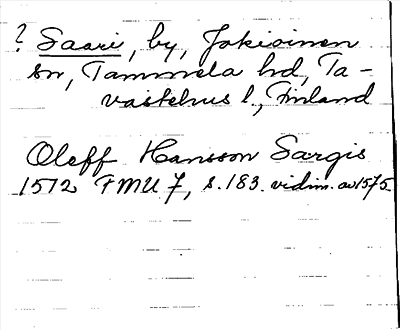 ? Saari, by, Jokioinen
sn, Tammela hd, Ta-
vastehus l., Finland
Oleff Hansson Sargis
1572 FMU 7, s. 183. vidim. av 1575